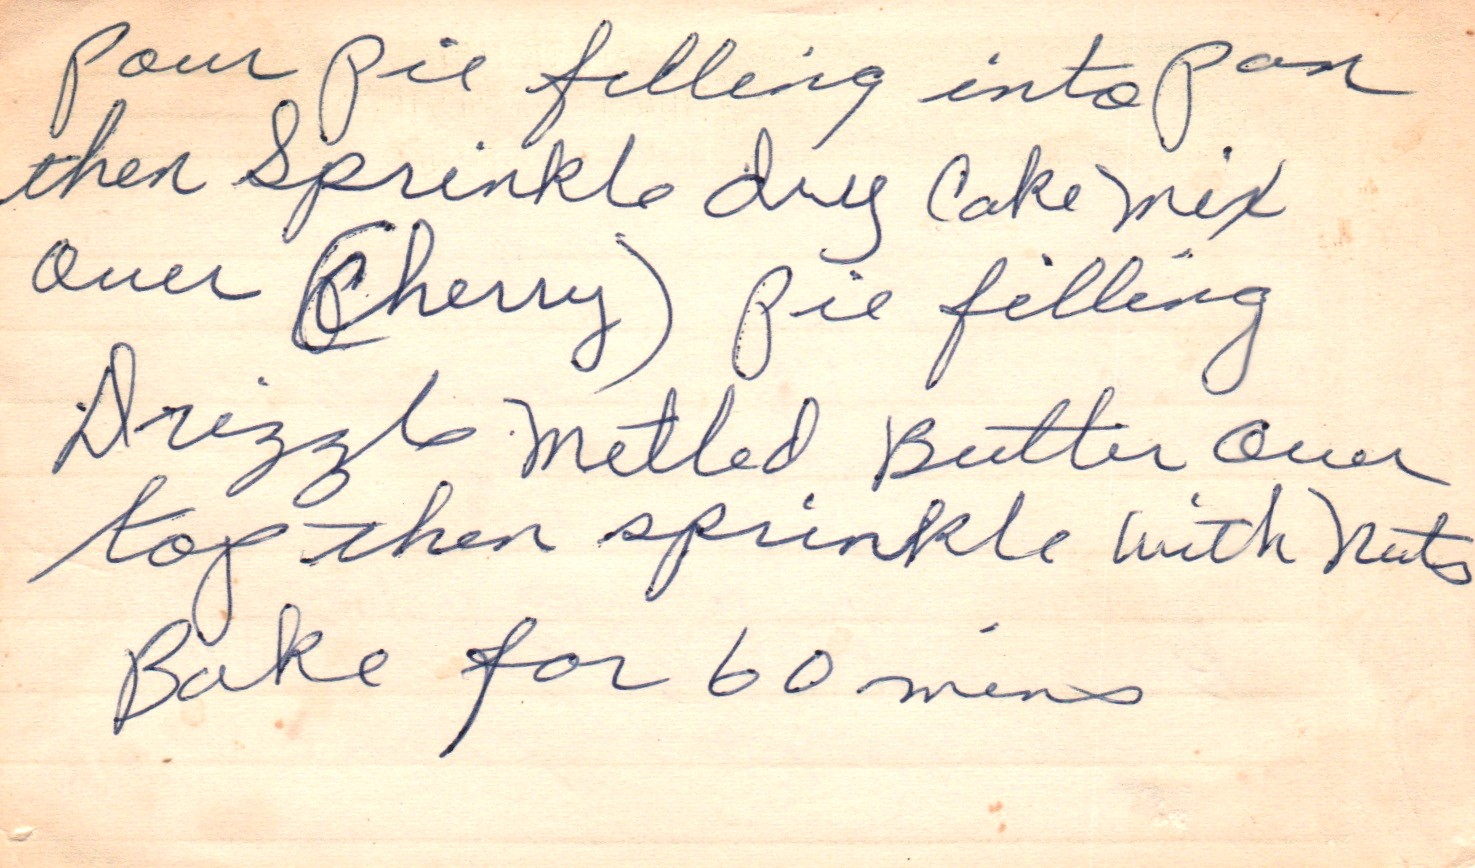 Pour pie filling into pan
then Sprinkle dry Cake mix
over (Cherry) pie filling
Drizzle Metled Butter over
top then sprinkle with Nuts
Bake for 60 mins